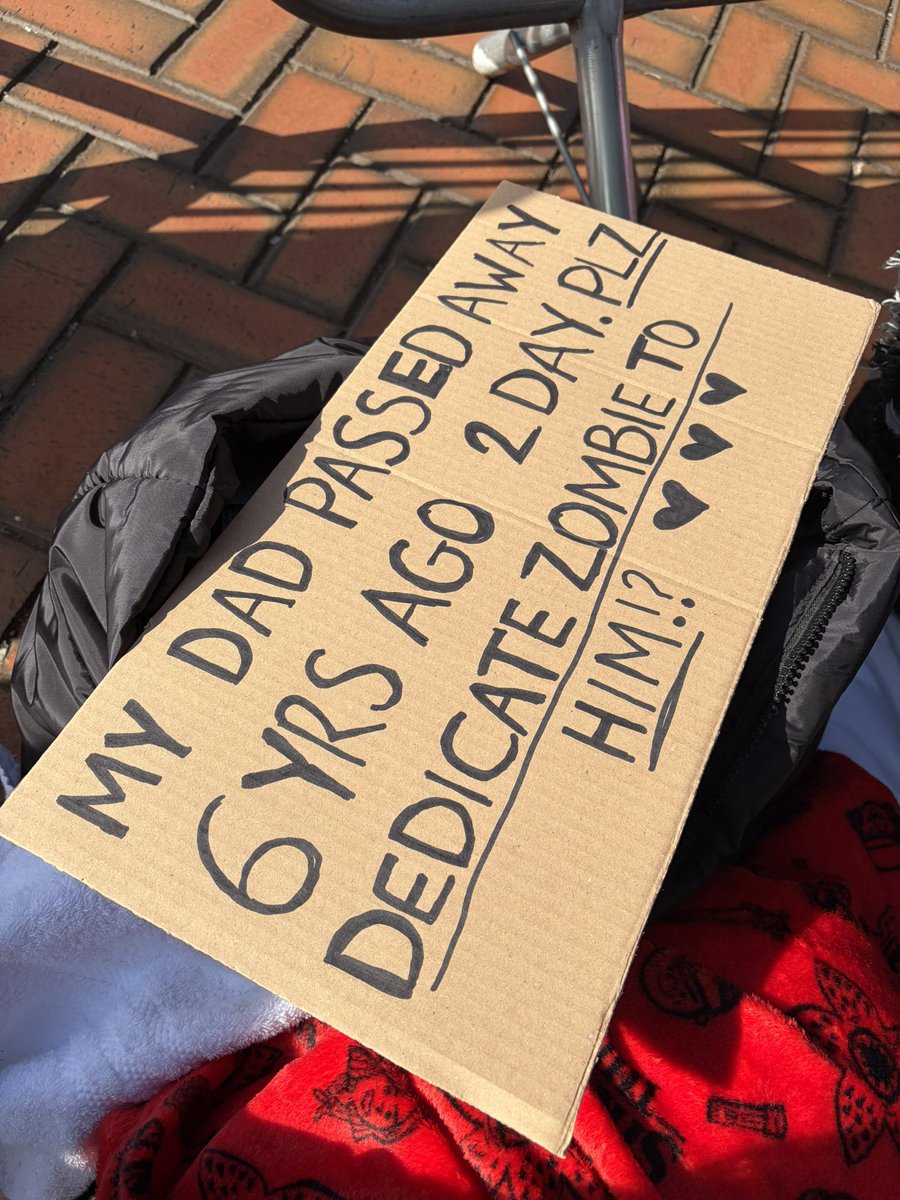 MY DAD PASSED AWAY
6 YRS AGO 2 DAY. PLZ
DEDICATE ZOMBIE TO
HIM!?